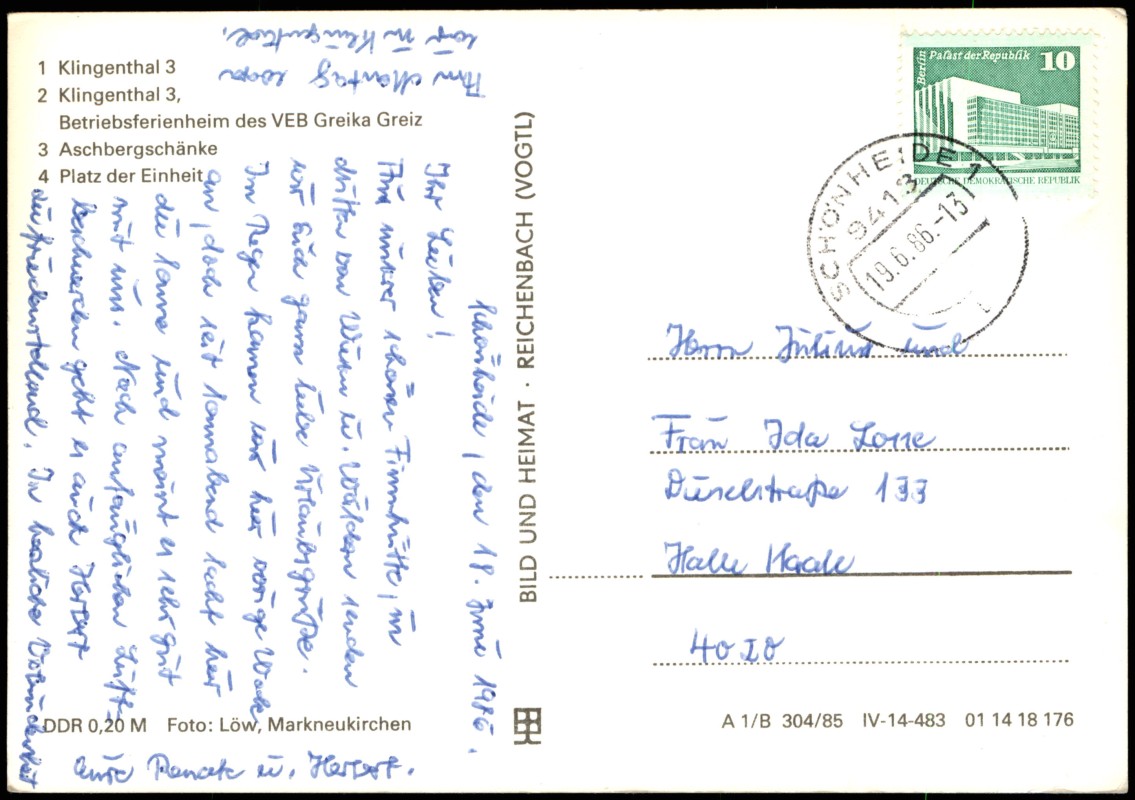 1 Klingenthal 3
2 Klingenthal 3,
Betriebsferienheim des VEB Greika Greiz
3 Aschbergschänke
4 Platz der Einheit
Schönheide, den 18. Juni 1986.
Ihr Lieben!
Aus unserer schönen Finnhütte, in
dritten von Wiesen u. Wäldern senden
wir Euch ganz liebe Urlaubsgrüße.
Im Regen kamen wir hier vorige Woche
an, doch seit Sonnabend lacht hier
die Sonne und meint es sehr gut
mit uns. Nach anfänglichen Luft-
beschwerden geht es auch Herbert
zufriedenstellend. In herzlicher Verbundenheit
Eure Renate u. Herbert.
Am Montag waren
wir in Klingenthal.
DDR 0,20 M Foto: Löw, Markneukirchen
BILD UND HEIMAT · REICHENBACH (VOGTL)
Berlin Palast der Republik 10
DEUTSCHE DEMOKRATISCHE REPUBLIK
SCHÖNHEIDE 1
9413
19.6.86.-13
Herrn Julius und
Frau Ida Lorre
Düselstraße 133
Halle Saale
4020
A 1/B 304/85 IV-14-483 01 14 18 176